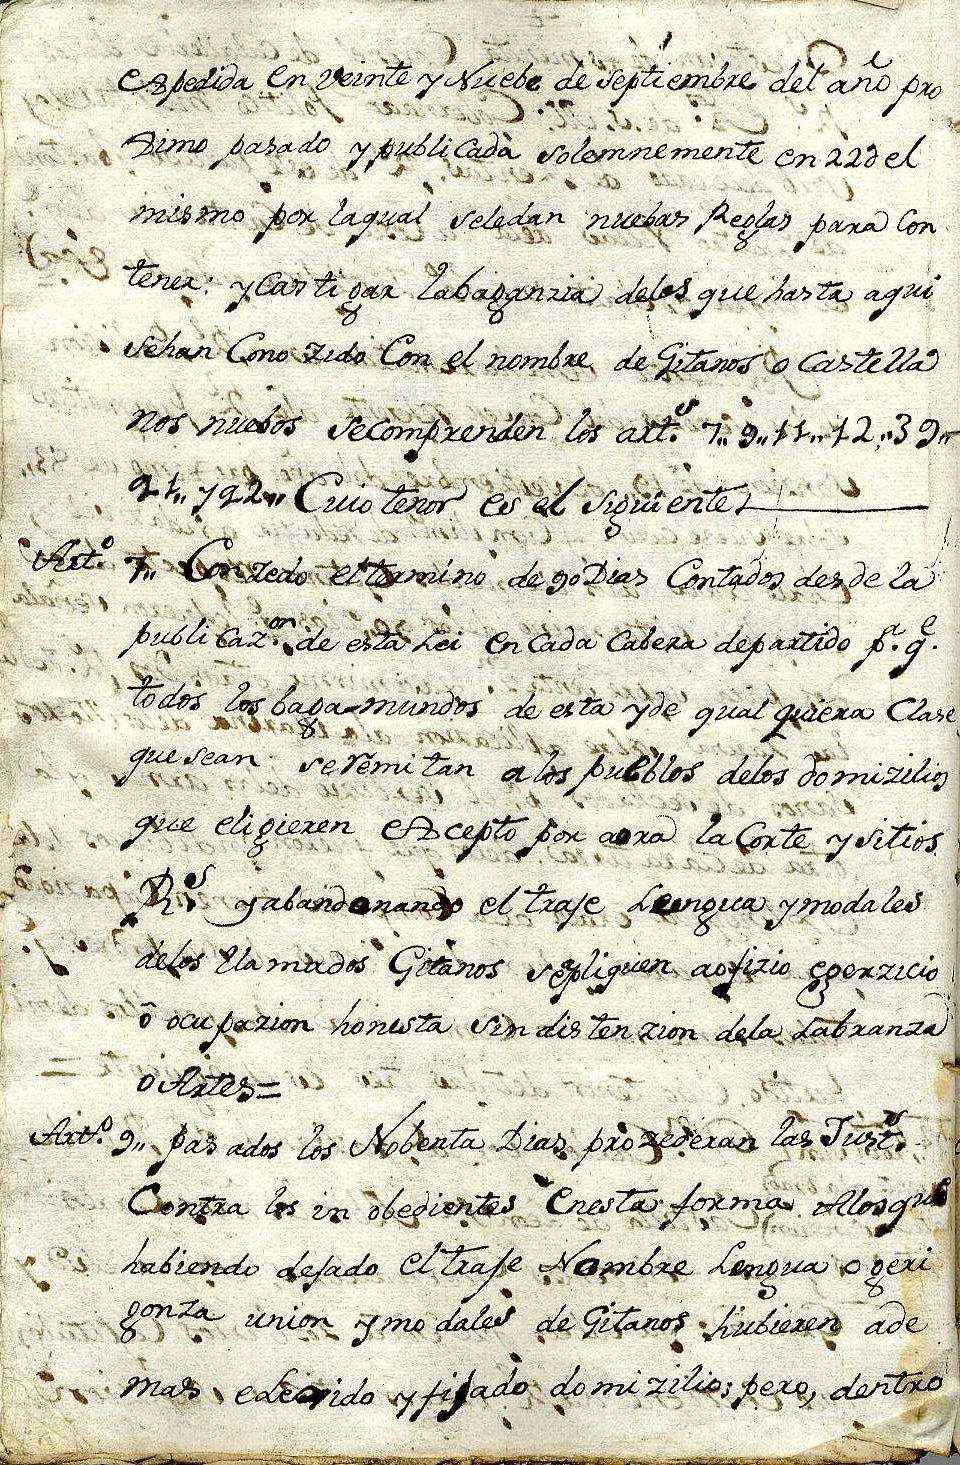 expedida en veinte y Nuebe de septiembre del año pro
ximo pasado y publicada solemnemente en 22 del
mismo por laqual seledan nuebas Reglas para Con
tener: y Castigar labaganzia delos que hasta aqui
sehan Conozido Con el nombre de Gitanos o Castella
nos nuebos secomprenden los art.s 7,, 9,, 11,, 12,, 39,,
21,, y 22,, Cuio tenor es el siguiente
Art.o 7,, Conzedo eltermino de 90 Dias Contados desde la
publicaz.on de esta Lei en Cada Cabeza departido p.a q.e
todos los baga-mundos de esta yde qual quiera Clase
que sean seremitan a los pueblos delos domizilios
que eligieren excepto por aora la Corte y sitios
R.s y abandonando el traje Lengua y modales
delos llamados Gitanos sepliquen aofizio egerzicio
ô ocupazion honesta sin distenzion dela Labranza
o Artes=
Art.o 9,, pasados los Nobenta Dias prozederan las Just.s
Contra los in obedientes Enesta forma Alosque
habiendo dejado el traje Nombre Lengua o geri
gonza union y modales de Gitanos hubieren ade
mas eLegido y fijado domizilio; pero, dentro